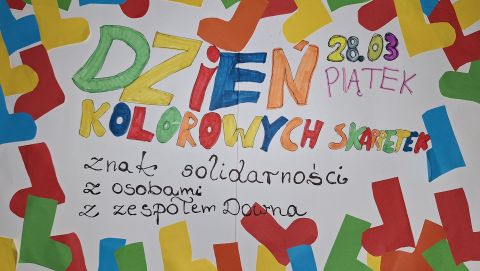 DZIEŃ
28.03
PIĄTEK
KOLOROWYCH SKARPETEK
znak solidarności
z osobami
z zespołem Downa